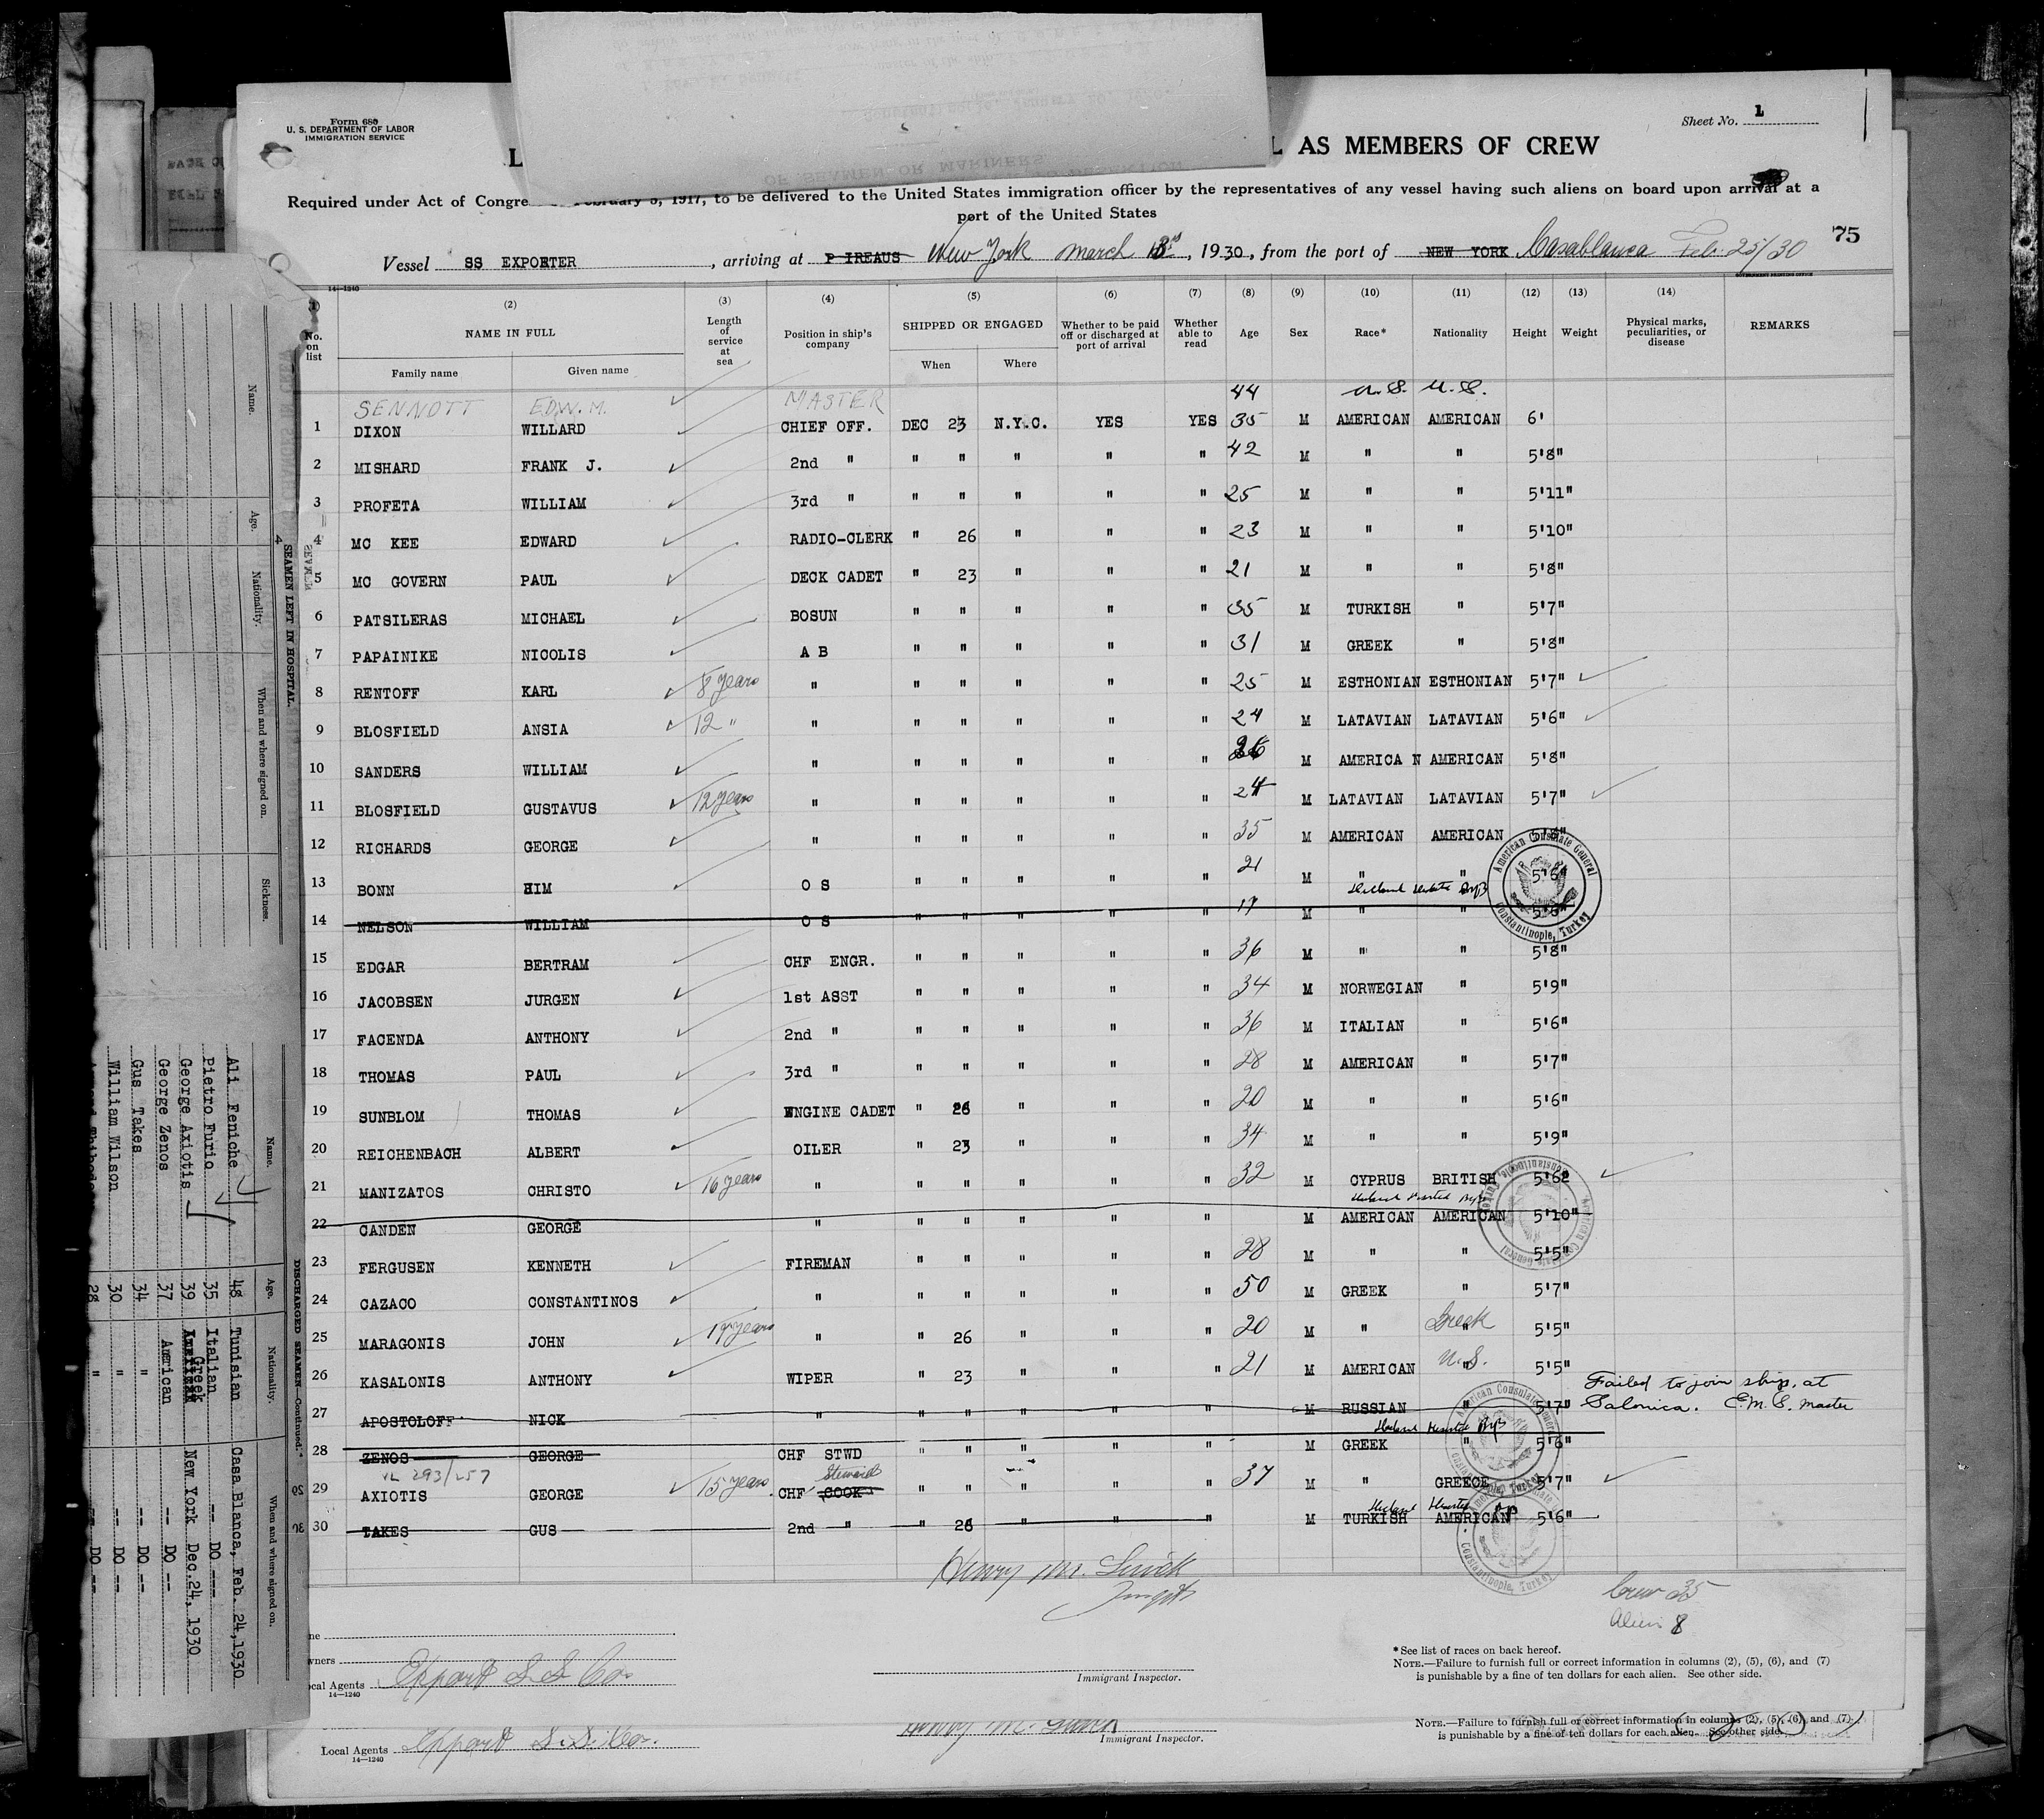 Form 680
U. S. DEPARTMENT OF LABOR
IMMIGRATION SERVICE
Sheet No. 1
L AS MEMBERS OF CREW
OF SEAMEN OR MARINERS
Required under Act of Congre February 5, 1917, to be delivered to the United States immigration officer by the representatives of any vessel having such aliens on board upon arrival at a
port of the United States
75
Vessel SS EXPORTER, arriving at PIREAUS New York March 3rd, 1930, from the port of NEW YORK Casablanca Feb. 25/30
14—1240
GOVERNMENT PRINTING OFFICE
(1) (2) (3) (4) (5) (6) (7) (8) (9) (10) (11) (12) (13) (14)
No. on list NAME IN FULL Length of service at sea Position in ship's company SHIPPED OR ENGAGED Whether to be paid off or discharged at port of arrival Whether able to read Age Sex Race* Nationality Height Weight Physical marks, peculiarities, or disease REMARKS
Family name Given name When Where
SENNOTT EDW. M. MASTER 44 U.S. U.S.
1 DIXON WILLARD CHIEF OFF. DEC 23 N.Y.C. YES YES 35 M AMERICAN AMERICAN 6'
2 MISHARD FRANK J. 2nd " " " " " " 42 M " " 5'8"
3 PROFETA WILLIAM 3rd " " " " " " 25 M " " 5'11"
4 MC KEE EDWARD RADIO-CLERK " 26 " " " 23 M " " 5'10"
5 MC GOVERN PAUL DECK CADET " 23 " " " 21 M " " 5'8"
6 PATSILERAS MICHAEL BOSUN " " " " " 35 M TURKISH " 5'7"
7 PAPAINIKE NICOLIS A B " " " " " 31 M GREEK " 5'8"
8 RENTOFF KARL 8 years " " " " " " 25 M ESTHONIAN ESTHONIAN 5'7"
9 BLOSFIELD ANSIA 12 " " " " " " " 24 M LATAVIAN LATAVIAN 5'6"
10 SANDERS WILLIAM " " " " " " 26 M AMERICA N AMERICAN 5'8"
11 BLOSFIELD GUSTAVUS 12 years " " " " " " 24 M LATAVIAN LATAVIAN 5'7"
12 RICHARDS GEORGE " " " " " " 35 M AMERICAN AMERICAN 5'8"
13 BONN HIM O S " " " " " 21 M " " 5'6"
14 NELSON WILLIAM O S " " " " " 17 M " " 5'8"
15 EDGAR BERTRAM CHF ENGR. " " " " " 36 M " " 5'8"
16 JACOBSEN JURGEN 1st ASST " " " " " 34 M NORWEGIAN " 5'9"
17 FACENDA ANTHONY 2nd " " " " " " 36 M ITALIAN " 5'6"
18 THOMAS PAUL 3rd " " " " " " 28 M AMERICAN " 5'7"
19 SUNBLOM THOMAS ENGINE CADET " 26 " " " 20 M " " 5'6"
20 REICHENBACH ALBERT OILER " 23 " " " 34 M " " 5'9"
21 MANIZATOS CHRISTO 16 years " " " " " " 32 M CYPRUS BRITISH 5'62
22 CANDEN GEORGE " " " " " " M AMERICAN AMERICAN 5'10"
23 FERGUSEN KENNETH FIREMAN " " " " " 28 M " " 5'5"
24 CAZACO CONSTANTINOS " " " " " " 50 M GREEK " 5'7"
25 MARAGONIS JOHN years " " 26 " " " 20 M " Greek " 5'5"
26 KASALONIS ANTHONY WIPER " 23 " " " 21 M AMERICAN U.S. " 5'5"
27 APOSTOLOFF NICK " " " " " " M RUSSIAN " 5'7" Failed to join ship, at
Salonica. E.M.S. master
28 ZENOS GEORGE CHF STWD " " " " " M GREEK " 5'6"
VL 293/257
Steward
29 AXIOTIS GEORGE 15 years CHF COOK " " " " " 37 M " GREECE 5'7"
30 TAKES GUS 2nd " " 26 " " " M TURKISH AMERICAN 5'6"
American Consulate General
Constantinople, Turkey
Henry M.
Crew 35
Alien 8
*See list of races on back hereof.
NOTE.—Failure to furnish full or correct information in columns (2), (5), (6), and (7)
is punishable by a fine of ten dollars for each alien. See other side.
Local Agents Export S S Co
14—1240
Immigrant Inspector.
NOTE.—Failure to furnish full or correct information in columns (2), (5), (6), and (7)
is punishable by a fine of ten dollars for each alien. See other side.
Local Agents Export S.S. Co.
14—1240
Immigrant Inspector.
SEAMEN LEFT IN HOSPITAL.
Name. Age. Nationality. When and where signed on. Sickness.
DISCHARGED SEAMEN—Continued.
Name. Age. Nationality. When and where signed on.
Ali Feniche 48 Tunisian Casa Blanca, Feb. 24, 1930
Pietro Furio 35 Italian -- DO ---
George Axiotis 39 Greek New York Dec. 24, 1930
George Zenos 37 American -- DO --
Gus Takes 34 " -- DO --
William Wilson 30 " -- DO --
28 " -- DO --